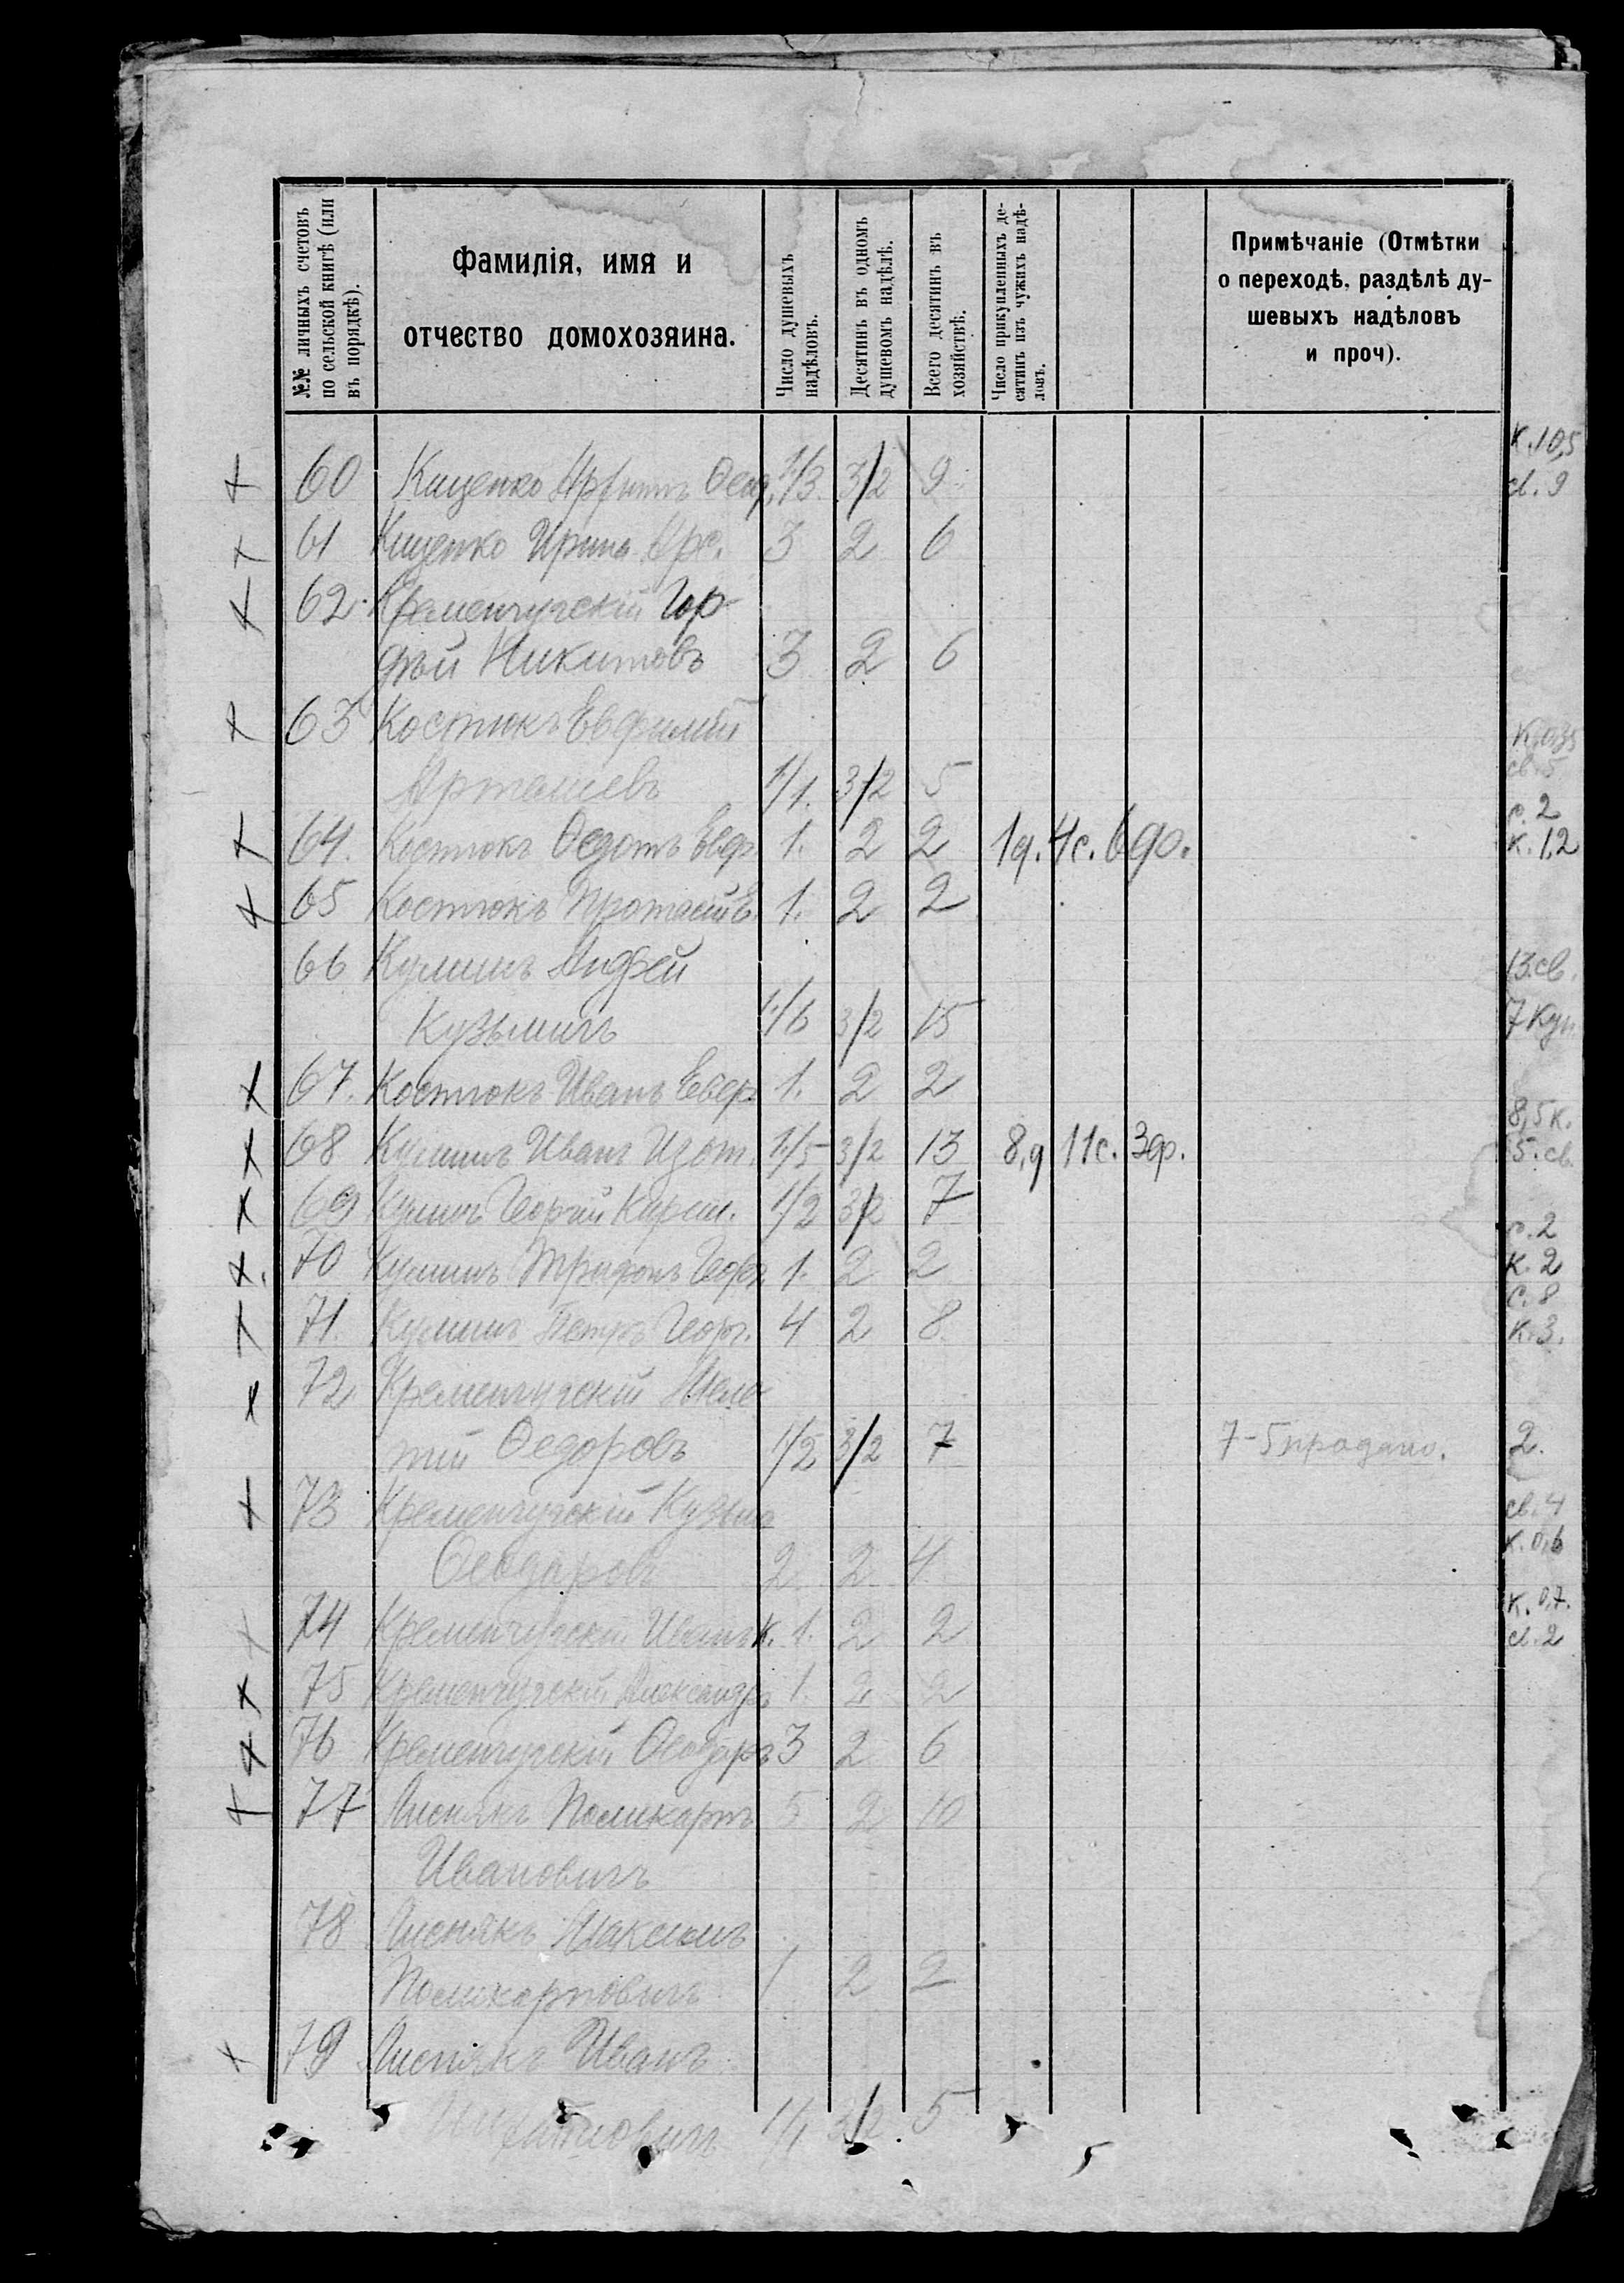 №№ личныхъ счетовъ по сельской книгѣ (или въ порядкѣ).
Фамилія, имя и отчество домохозяина.
Число душевыхъ надѣловъ.
Десятинъ въ одномъ душевомъ надѣлѣ.
Всего десятинъ въ хозяйствѣ.
Число прикупленныхъ десятинъ изъ чужихъ надѣловъ.
Примѣчаніе (Отмѣтки
о переходѣ, раздѣлѣ ду-
шевыхъ надѣловъ
и проч).
к. 10,5
60 Кищенко 1/3 3/2 9 св. 9
61 Кищенко Ирина Арс. 3 2 6
62 Кременчугскій Гор
дѣй Никитовъ 3 2 6
63 Костюкъ Евфимій
1/1. 3/2 5 св. 5
с. 2
64. Костюкъ Федотъ Евф. 1. 2 2 1д. 4с. 6 к. 1,2
65 Костюкъ Протасій Е. 1. 2 2
66 Кулишъ Андрей 13.св.
Кузьмичъ 1/6 3/2 15 7 Куп.
67. Костюкъ Иванъ Евф. 1. 2 2
8,5 к.
68 Кулишъ Иванъ Изот. 1/5 3/2 13 8,д 11с. 5.св.
69 Кулишъ Георгій Кирил. 1/2 3/2 7
с. 2
70 Кулишъ Трифонъ Георг. 1. 2 2 к. 2
с. 8
71. Кулишъ Петръ Георг. 4 2 8 к. 3.
72 Кременчугскій Меле
тій Федоровъ 1/2 3/2 7 7-5 продано. 2.
73 Кременчугскій Кузьма св. 4
Феодоровъ 2 2 4 к. 0,6
к. 0,7.
74 Кременчугскій Иванъ К. 1. 2 2 св. 2
75 Кременчугскій Александръ 1. 2 2
76 Кременчугскій Феодоръ 3 2 6
77 Лиснякъ Поликарпъ 5 2 10
Ивановичъ
78 Лиснякъ Максимъ
Поликарповичъ 1 2 2
79 Лиснякъ Иванъ
1/1 3/2 5